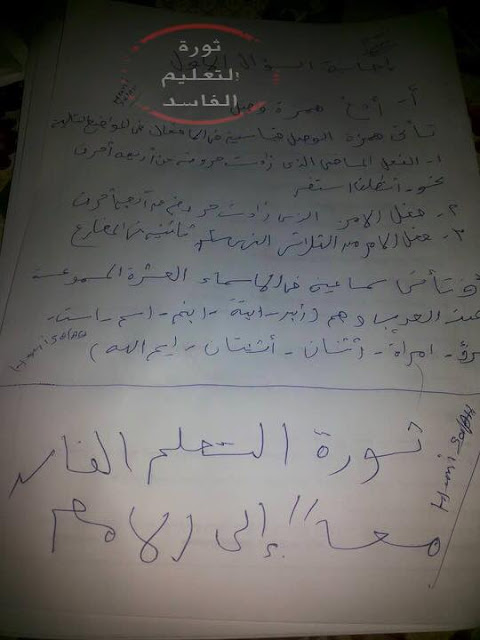 إجابة السؤال الأول
ثورة
التعليم
الفاسد
أ- همزة وصل
تأتى همزة الوصل قياسية فى الأفعال فى المواضع التالية
١- الفعل الماضى الذى زادت حروفه عن أربعة أحرف
نحو - انطلق استغفر
٢- فعل الأمر الذى زادت حروفه عن أربعة أحرف
٣- فعل الأمر من الثلاثى الذى ثانيه فى المضارع
وتأتى سماعية فى الأسماء العشرة المسموعة
عند العرب وهم (ابن - ابنة - ابنم - اسم - است -
امرؤ - امرأة - اثنان - اثنتان - ايم الله)
ثورة التعلم الفاسد
معا // إلى الامام